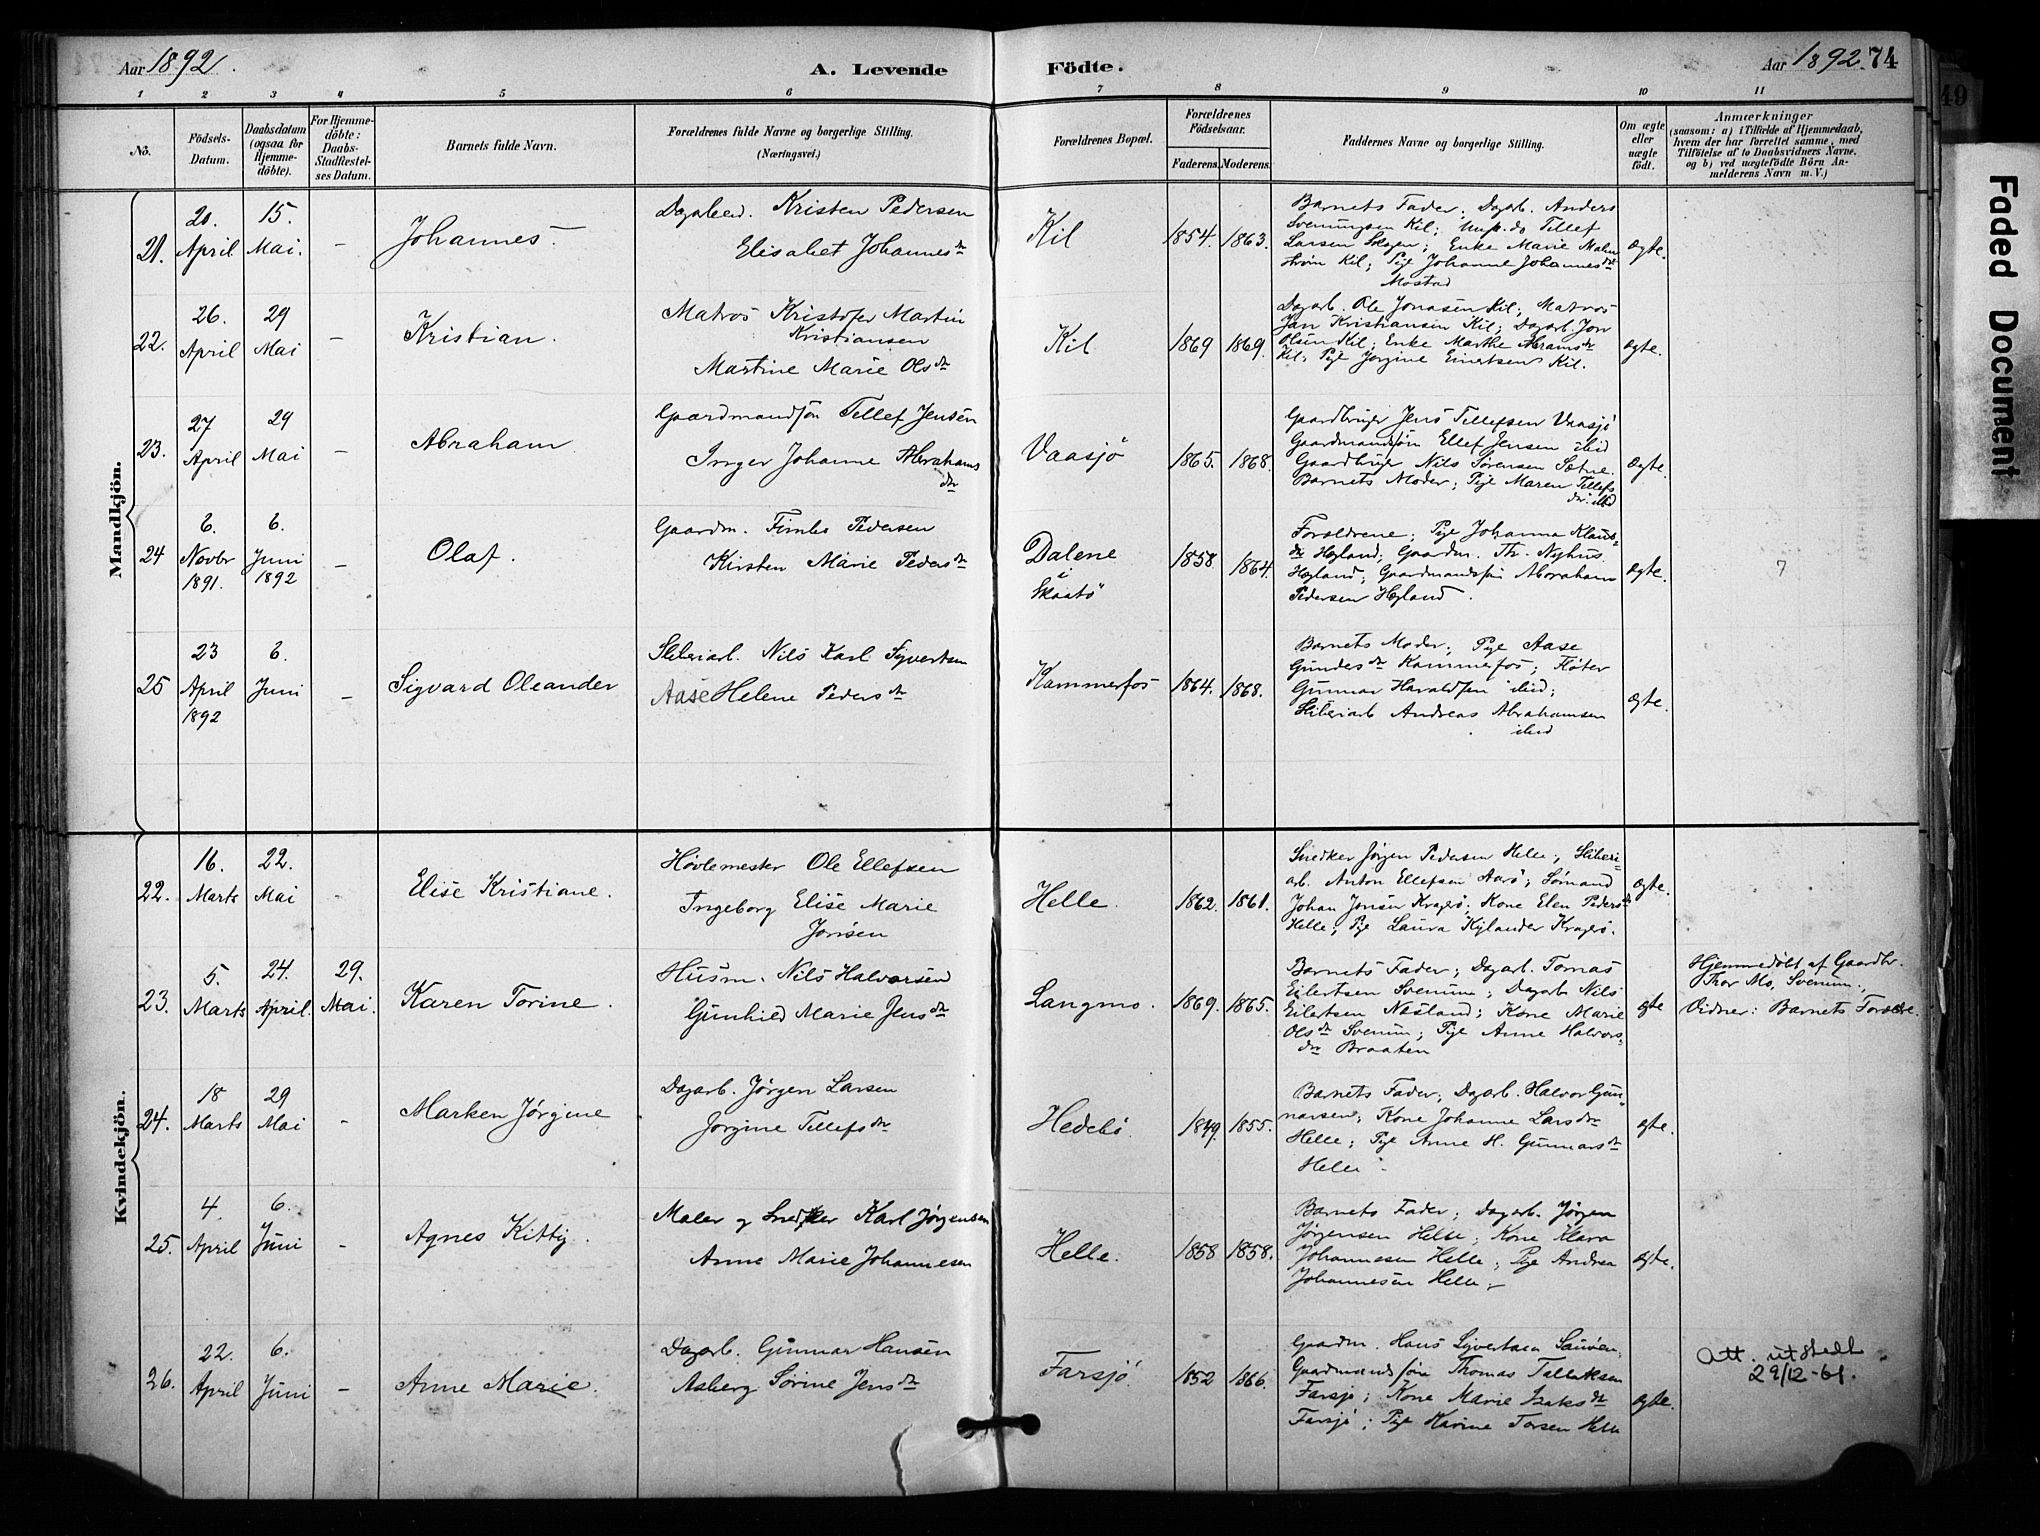 Aar 1892.
A. Levende Födte.
Aar 1892. 74
49
Faded Document
1 2 3 4 5 6 7 8 9 10 11
No.
Födsels-
Datum.
Daabsdatum
(ogsaa for
Hjemme-
döbte).
For Hjemme-
döbte:
Daabs-
Stadfæstel-
ses Datum.
Barnets fulde Navn.
Forældrenes fulde Navne og borgerlige Stilling.
(Næringsvei.)
Forældrenes Bopæl.
Forældrenes
Födselsaar.
Faderens. Moderens.
Faddernes Navne og borgerlige Stilling.
Om ægte
eller
uægte
födt.
Anmærkninger
(saasom: a) i Tilfælde af Hjemmedaab,
hvem der har forrettet samme, med
Tilföielse af to Daabsvidners Navne,
og b) ved uægtefödte Börn An-
melderens Navn m. V.)
Mandkjön.
21. 20. April 15. Mai. – Johannes.
Dagarbeid. Kristen Pedersen
Elisabet Johannesdr
Kil 1854. 1863.
Barnets Fader; Dagarb. Anders
Svenningsen Kil; Tellef
Larsen; Enke Marie Malm
strøm Kil; Pige Johanne Johannesdr
Mostad
Ægte.
22. 26. April 29 Mai – Kristian.
Matros Kristofer Martin
Kristiansen
Martine Marie Olsdr
Kil 1869 1869.
Dagarb. Ole Jonasen Kil; Matros
Jan Kristiansen Kil; Dagarb. Jon
Olsen Kil; Enke Marthe Abramsdr
Kil; Pige Jorgine Einertsen Kil.
Ægte.
23. 27 April 29 Mai – Abraham
Gaardmandsøn Tellef Jensen
Inger Johanne Abrahams
dr
Vaasjö 1865. 1868.
Gaardbruger Jens Tellefsen Vaasjö
Gaardmandsøn Ellef Jensen ibid
Gaardbruger Nils Sørensen Sætne.
Barnets Moder; Pige Maren Tellefs
dr. ibid
Ægte.
24 6. Novbr 1891. 6. Juni 1892 – Olaf.
Gaardm. Pedersen
Kirsten Marie Pedersdr
Dalene
i
Skaatö
1858 1864.
Forældrene; Pige Johanna Klaus-
dr Hegland; Gaardm. Th. Nyhus
Hegland; Gaardmandsøn Abraham
Pedersen Hegland.
Ægte.
7
25 23 April 1892 6. Juni – Sigvard Oleander
Sliberiarb. Nils Karl Syvertsen
Aase Helene Pedersdr
Kammerfos 1864. 1868.
Barnets Moder; Pige Aase
Gundesdr Kammerfos; Fløter
Gunnar Haraldsen ibid;
Sliberiarb Andreas Abrahamsen
ibid
Ægte.
Kvindekjön.
22. 16. Marts 22. Mai – Elise Kristiane.
Høvlemester Ole Ellefsen
Ingeborg Elise Marie
Jonsen
Helle. 1862. 1861.
Snedker Jørgen Pedersen Helle; Sliberi-
arb. Anton Ellefsen Aarø; Sømand
Johan Jonsen Kragerø; Kone Elen Pedersdr
Helle; Pige Laura Kylander Kragerø.
Ægte.
23. 5. Marts 24. April. 29. Mai. Karen Torine.
Husm. Nils Halvorsen
Gunhild Marie Jensdr
Langmo. 1869. 1865.
Barnets Fader; Dagarb. Tomas
Eilertsen Svenum; Dagarb Nils
Eilertsen Næsland; Kone Marie
Olsdr Svenum; Pige Anne Halvors-
dr Braaten
Ægte
Hjemmedöbt af Gaardbr.
Thor Mo, Svenum.,
Vidner: Barnets Foræltre.
24. 18 Marts 29 Mai – Marken Jørgine
Dagarb. Jørgen Larsen
Jorgine Tellefsdr
Hedebö. 1849. 1855.
Barnets Fader; Dagarb. Halvor Gun-
narsen; Kone Johanne Larsdr
Helle; Pige Anne H. Gunnarsdr
Helle.
Ægte.
25. 4. April 6. Juni – Agnes Kitty.
Maler og Snedker Karl Jørgensen
Anne Marie Johannesen
Helle. 1858 1858.
Barnets Fader; Dagarb. Jørgen
Jørgensen Helle; Kone Klara
Johannesen Helle; Pige Andrea
Johannesen Helle
Ægte.
26. 22. April 6. Juni – Anne Marie.
Dagarb. Gunnar Hansen
Asberg Sørine Jensdr
Farsjö. 1852 1866.
Gaardm. Hans Syvertsen
Gaardmandsøn Thomas Tallaksen
Farsjø; Kone Marie Isaksdr
Farsjö; Pige Karine Torsen Helle
Ægte.
Att. utstedt
29/12-61.